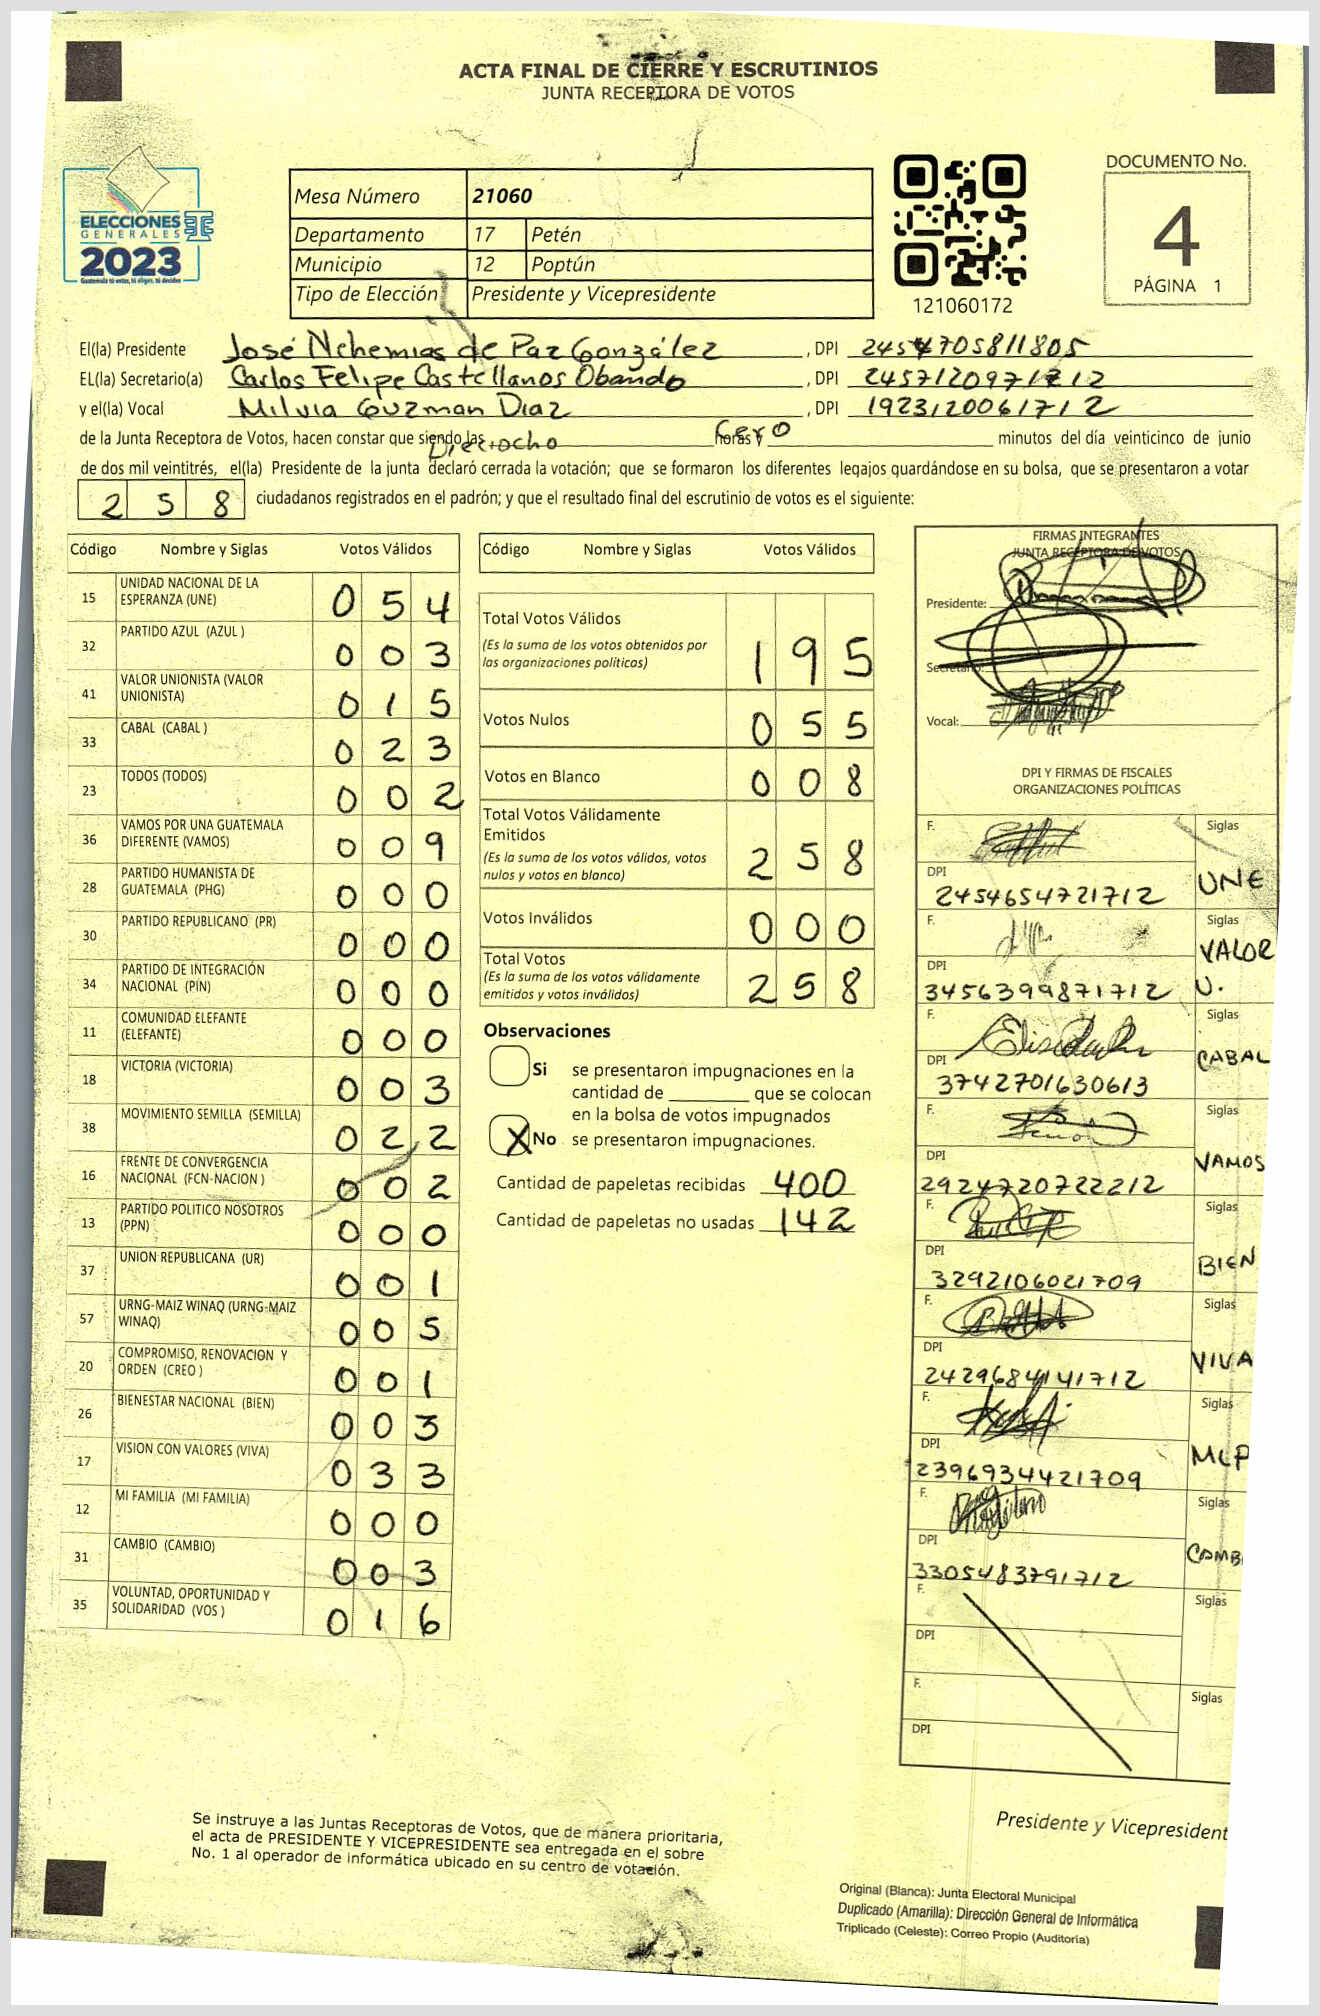 ACTA FINAL DE CIERRE Y ESCRUTINIOS
JUNTA RECEPTORA DE VOTOS
ELECCIONES
GENERALES
2023
Guatemala tú votas, tú eliges, tú decides
Mesa Número 21060
Departamento 17 Petén
Municipio 12 Poptún
Tipo de Elección Presidente y Vicepresidente
121060172
DOCUMENTO No.
4
PÁGINA 1
El(la) Presidente José Nehemias de Paz González , DPI 2454705811805
EL(la) Secretario(a) Carlos Felipe Castellanos Obando , DPI 2457120971712
y el(la) Vocal Milvia Guzman Diaz , DPI 1923120061712
de la Junta Receptora de Votos, hacen constar que siendo las Dieciocho horas y Cero minutos del día veinticinco de junio
de dos mil veintitrés, el(la) Presidente de la junta declaró cerrada la votación; que se formaron los diferentes legajos guardándose en su bolsa, que se presentaron a votar
258 ciudadanos registrados en el padrón; y que el resultado final del escrutinio de votos es el siguiente:
Código Nombre y Siglas Votos Válidos
15 UNIDAD NACIONAL DE LA ESPERANZA (UNE) 054
32 PARTIDO AZUL (AZUL ) 003
41 VALOR UNIONISTA (VALOR UNIONISTA) 015
33 CABAL (CABAL ) 023
23 TODOS (TODOS) 002
36 VAMOS POR UNA GUATEMALA DIFERENTE (VAMOS) 009
28 PARTIDO HUMANISTA DE GUATEMALA (PHG) 000
30 PARTIDO REPUBLICANO (PR) 000
34 PARTIDO DE INTEGRACIÓN NACIONAL (PIN) 000
11 COMUNIDAD ELEFANTE (ELEFANTE) 000
18 VICTORIA (VICTORIA) 003
38 MOVIMIENTO SEMILLA (SEMILLA) 022
16 FRENTE DE CONVERGENCIA NACIONAL (FCN-NACION ) 002
13 PARTIDO POLITICO NOSOTROS (PPN) 000
37 UNION REPUBLICANA (UR) 001
57 URNG-MAIZ WINAQ (URNG-MAIZ WINAQ) 005
20 COMPROMISO, RENOVACION Y ORDEN (CREO ) 001
26 BIENESTAR NACIONAL (BIEN) 003
17 VISION CON VALORES (VIVA) 033
12 MI FAMILIA (MI FAMILIA) 000
31 CAMBIO (CAMBIO) 003
35 VOLUNTAD, OPORTUNIDAD Y SOLIDARIDAD (VOS ) 016
Código Nombre y Siglas Votos Válidos
Total Votos Válidos 195
(Es la suma de los votos obtenidos por
las organizaciones políticas)
Votos Nulos 055
Votos en Blanco 008
Total Votos Válidamente
Emitidos 258
(Es la suma de los votos válidos, votos
nulos y votos en blanco)
Votos Inválidos 000
Total Votos 258
(Es la suma de los votos válidamente
emitidos y votos inválidos)
Observaciones
Si se presentaron impugnaciones en la
cantidad de ________ que se colocan
en la bolsa de votos impugnados
X No se presentaron impugnaciones.
Cantidad de papeletas recibidas 400
Cantidad de papeletas no usadas 142
FIRMAS INTEGRANTES
JUNTA RECEPTORA DE VOTOS
Presidente:
Secretario:
Vocal:
DPI Y FIRMAS DE FISCALES
ORGANIZACIONES POLÍTICAS
F. Siglas
DPI 2454654721712 UNE
F. Siglas
DPI 3456399871712 VALOR U.
F. Siglas
DPI 3742701630613 CABAL
F. Siglas
DPI 2924720722212 VAMOS
F. Siglas
DPI 3292106021709 BIEN
F. Siglas
DPI 2429684141712 VIVA
F. Siglas
DPI 2396934421709 MLP
F. Siglas
DPI 3305483791712 CAMB
F. Siglas
DPI
F. Siglas
DPI
Se instruye a las Juntas Receptoras de Votos, que de manera prioritaria,
el acta de PRESIDENTE Y VICEPRESIDENTE sea entregada en el sobre
No. 1 al operador de informática ubicado en su centro de votación.
Presidente y Vicepresident
Original (Blanca): Junta Electoral Municipal
Duplicado (Amarilla): Dirección General de Informática
Triplicado (Celeste): Correo Propio (Auditoría)